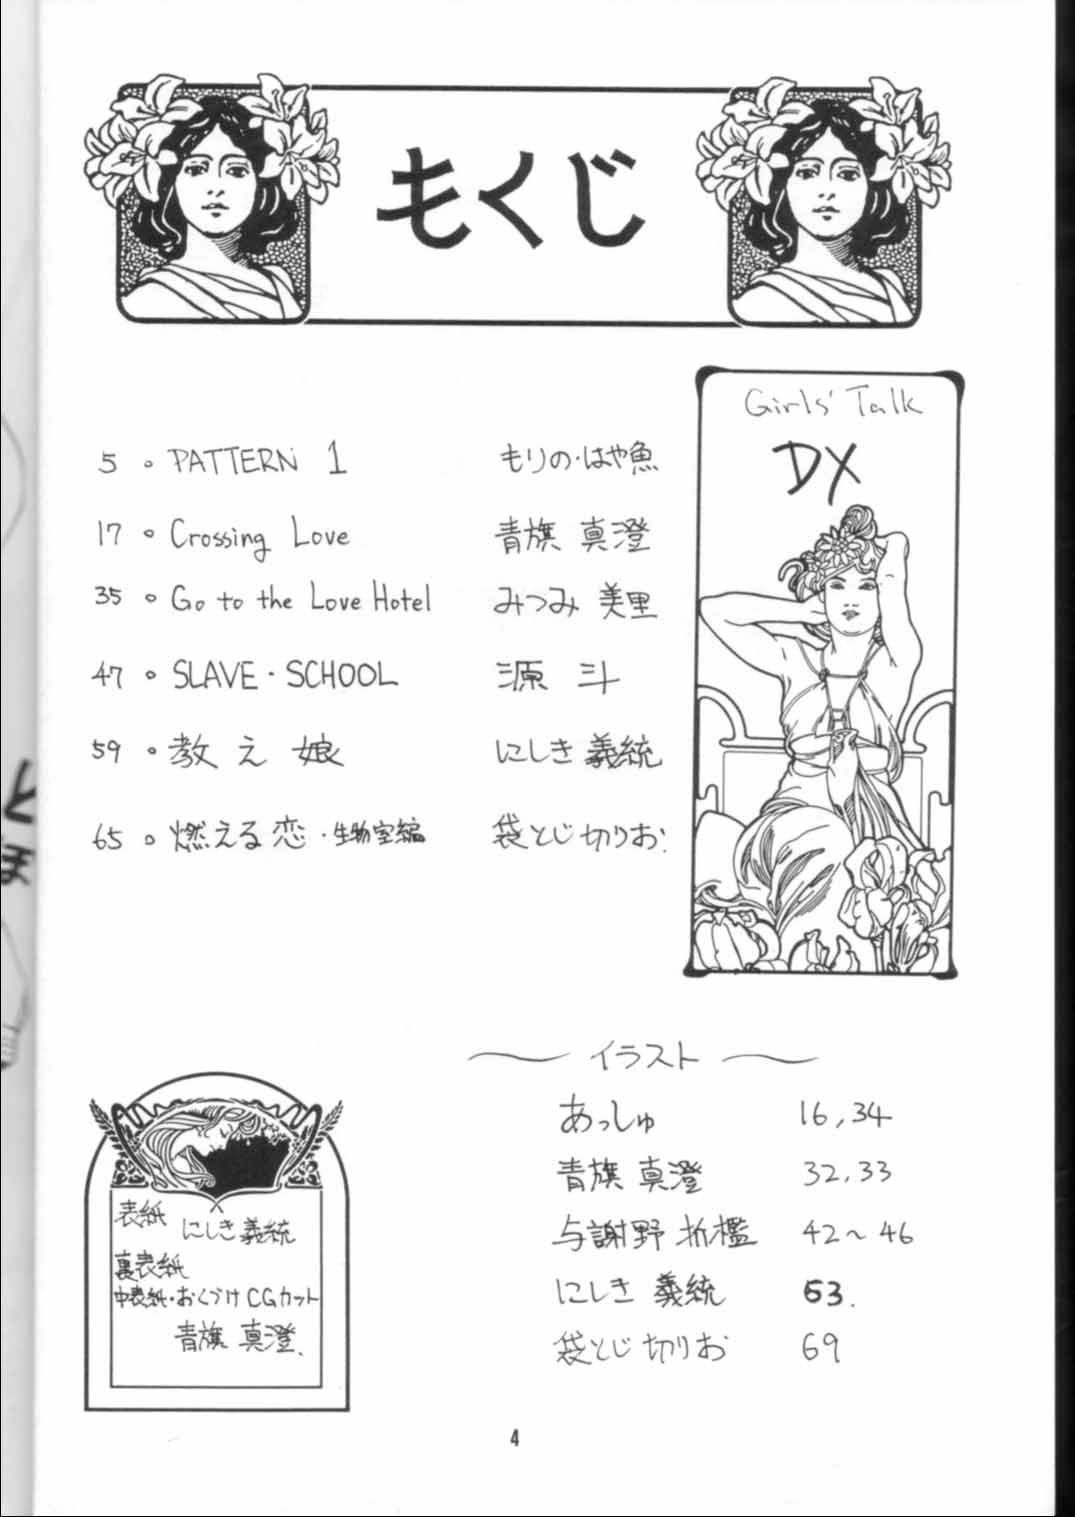 もくじ
Girls' Talk
DX
5 。 PATTERN 1 もりの・はや魚
17 。 Crossing Love 青旗 真澄
35 。 Go to the Love Hotel みつみ 美里
47 。 SLAVE・SCHOOL 源 斗
59 。 教え娘 にしき義統
65 。 燃える恋・生物室編 袋とじ切りお.
イラスト
あっしゅ 16,34
青旗 真澄 32,33
与謝野 折檻 42～46
にしき 義統 63.
袋とじ 切りお 69
表紙 にしき義統
裏表紙
中表紙・おくづけCGカット
青旗 真澄.
と
ほ
4